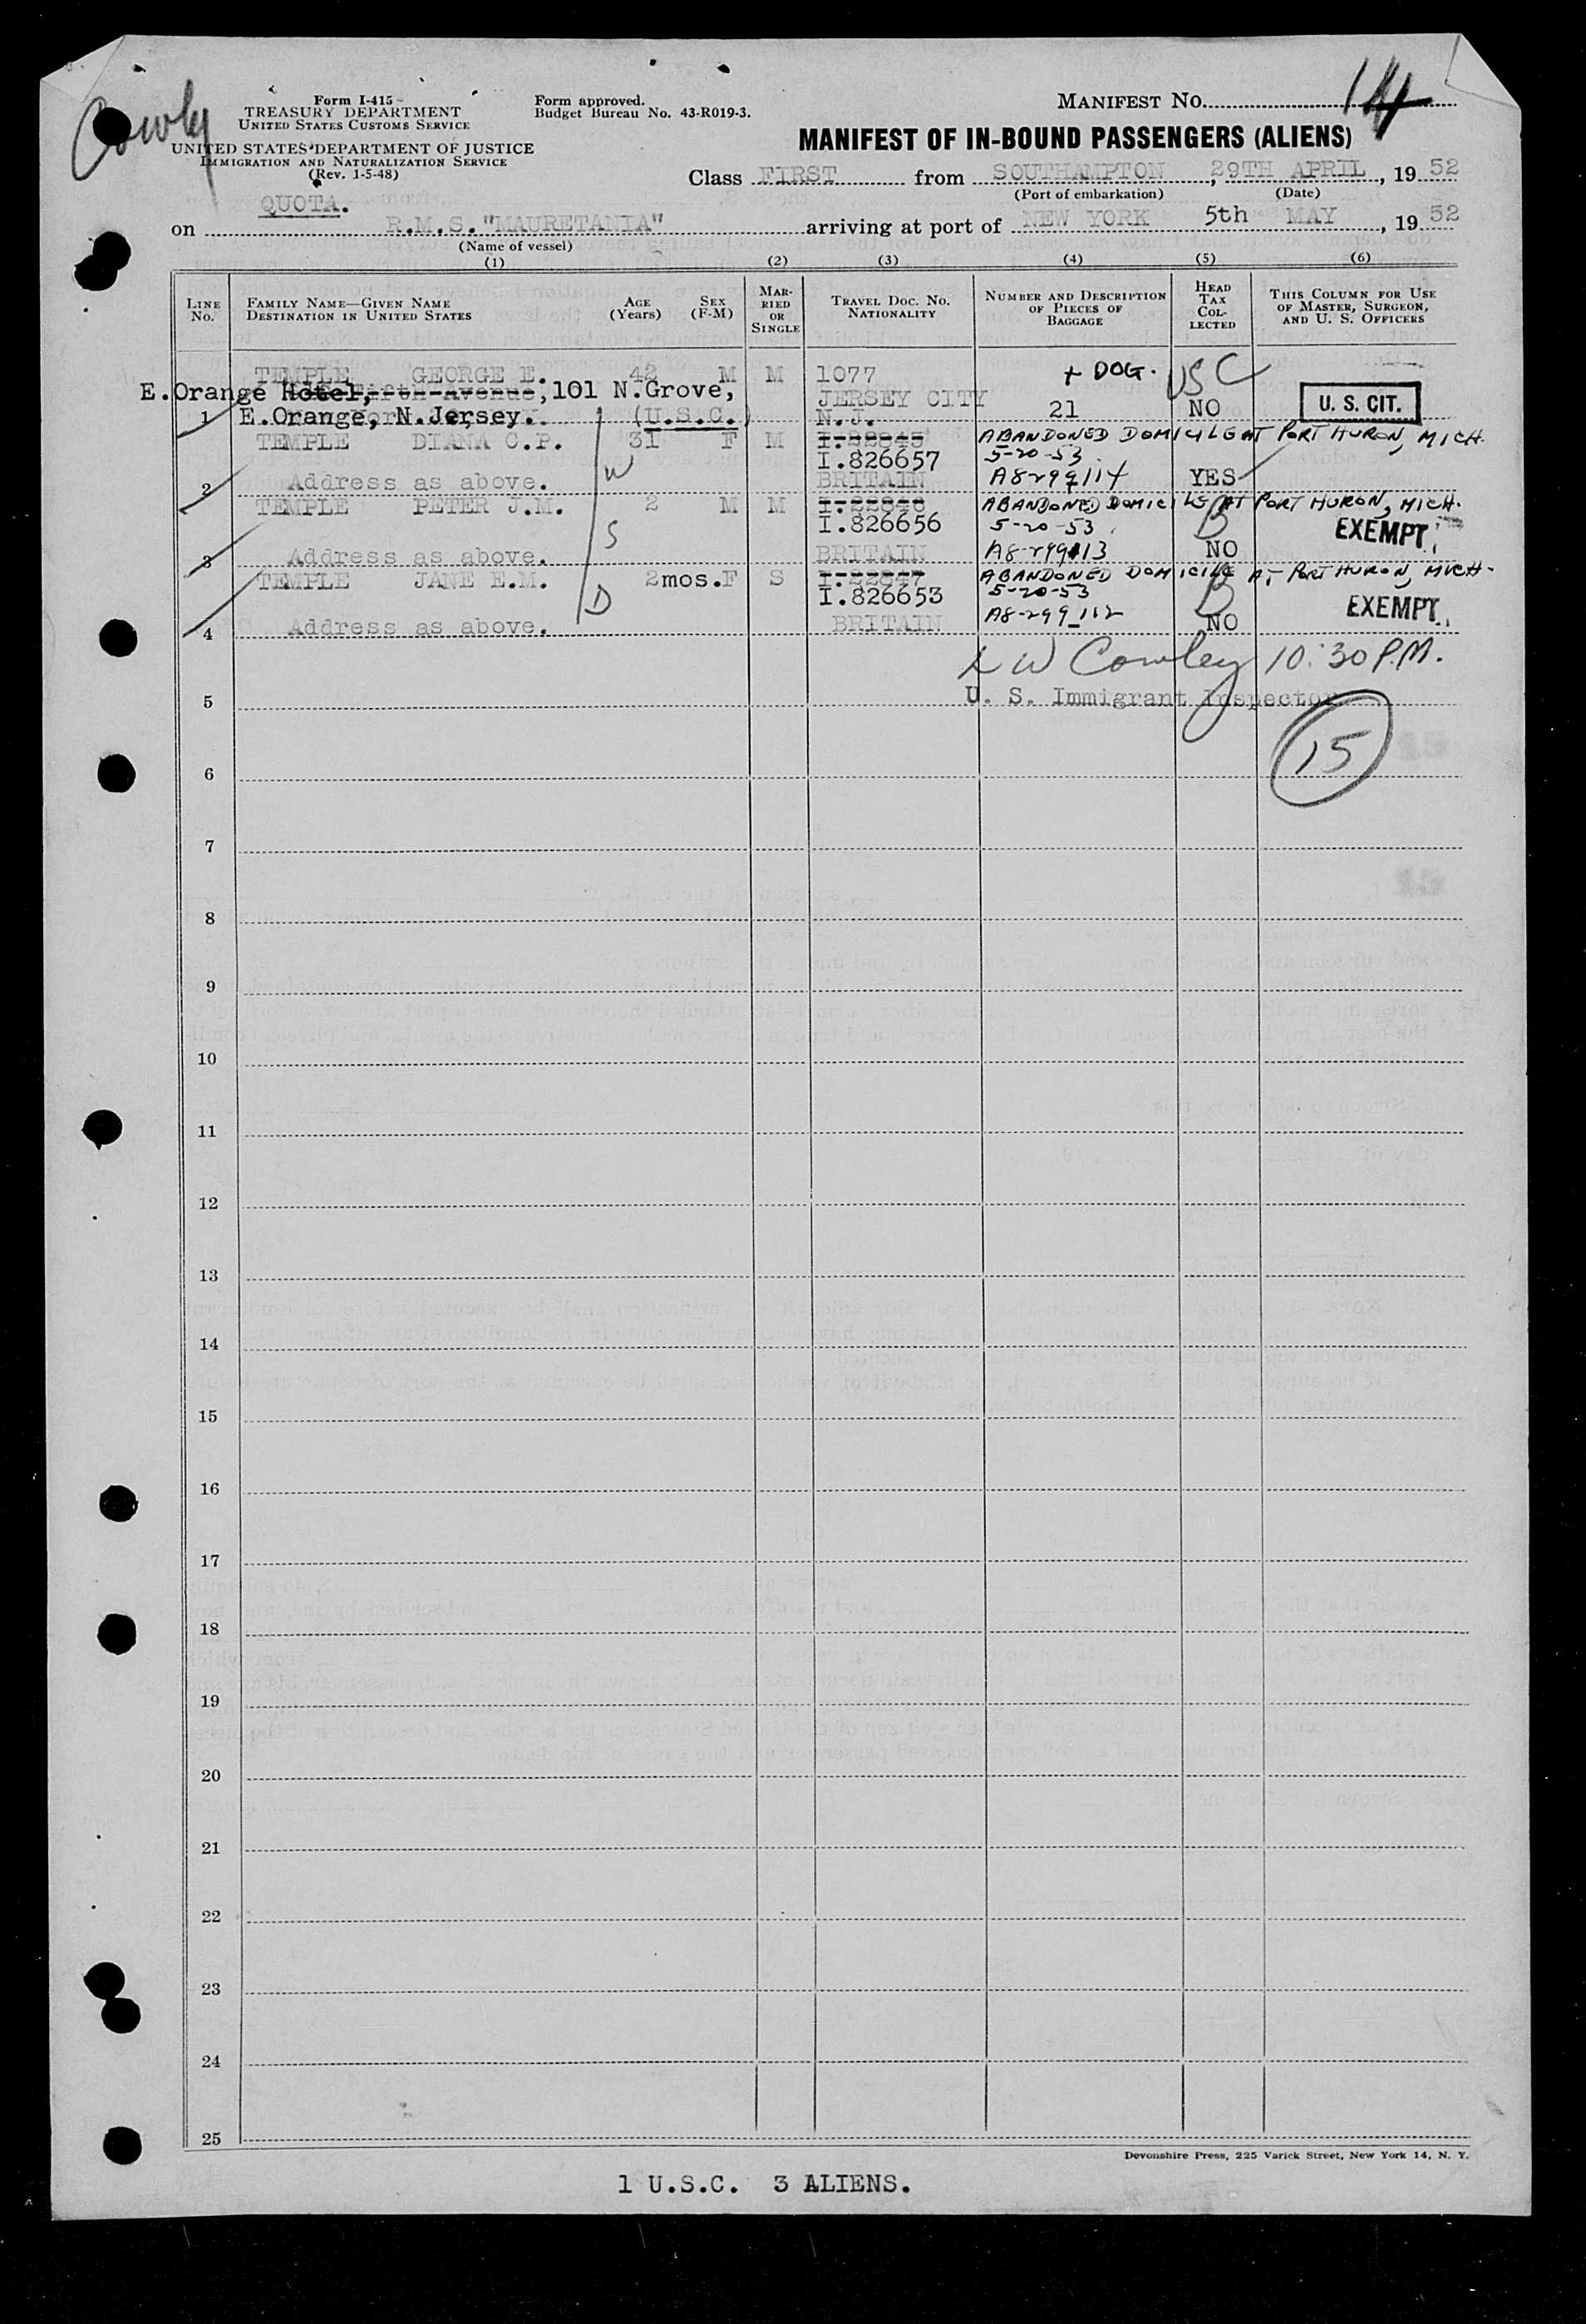 Cowly
Form I-415
TREASURY DEPARTMENT
UNITED STATES CUSTOMS SERVICE
UNITED STATES DEPARTMENT OF JUSTICE
IMMIGRATION AND NATURALIZATION SERVICE
(Rev. 1-5-48)
Form approved.
Budget Bureau No. 43-R019-3.
MANIFEST NO. 14
MANIFEST OF IN-BOUND PASSENGERS (ALIENS)
Class FIRST from SOUTHAMPTON, 29TH APRIL, 19 52
(Port of embarkation) (Date)
QUOTA.
on R.M.S. "MAURETANIA" arriving at port of NEW YORK 5th MAY, 19 52
(Name of vessel)
(1) (2) (3) (4) (5) (6)
LINE NO.
FAMILY NAME—GIVEN NAME
DESTINATION IN UNITED STATES
AGE (Years)
SEX (F-M)
MARRIED OR SINGLE
TRAVEL DOC. NO.
NATIONALITY
NUMBER AND DESCRIPTION OF PIECES OF BAGGAGE
HEAD TAX COLLECTED
THIS COLUMN FOR USE OF MASTER, SURGEON, AND U. S. OFFICERS
TEMPLE GEORGE E. 42 M M 1077 + DOG. USC
E.Orange Hotel, Fifth Avenue, 101 N.Grove, JERSEY CITY
1 E.Orange, N.Jersey. (U.S.C.) N.J. 21 NO U. S. CIT.
TEMPLE DIANA C.P. 31 F M I.22845 ABANDONED DOMICILE AT PORT HURON, MICH.
W I.826657 5-20-53
2 Address as above. BRITAIN A8299114 YES
TEMPLE PETER J.M. 2 M M I.22846 ABANDONED DOMICILE AT PORT HURON, MICH.
S I.826656 5-20-53 EXEMPT
3 Address as above. BRITAIN A8-299113 NO
TEMPLE JANE E.M. 2mos. F S I.22847 ABANDONED DOMICILE AT PORT HURON, MICH.
D I.826653 5-20-53 EXEMPT
4 Address as above. BRITAIN A8-299112 NO
L W Cowley 10:30 P.M.
5 U. S. Immigrant Inspector
15
6
7
8
9
10
11
12
13
14
15
16
17
18
19
20
21
22
23
24
25
Devonshire Press, 225 Varick Street, New York 14, N. Y.
1 U.S.C. 3 ALIENS.